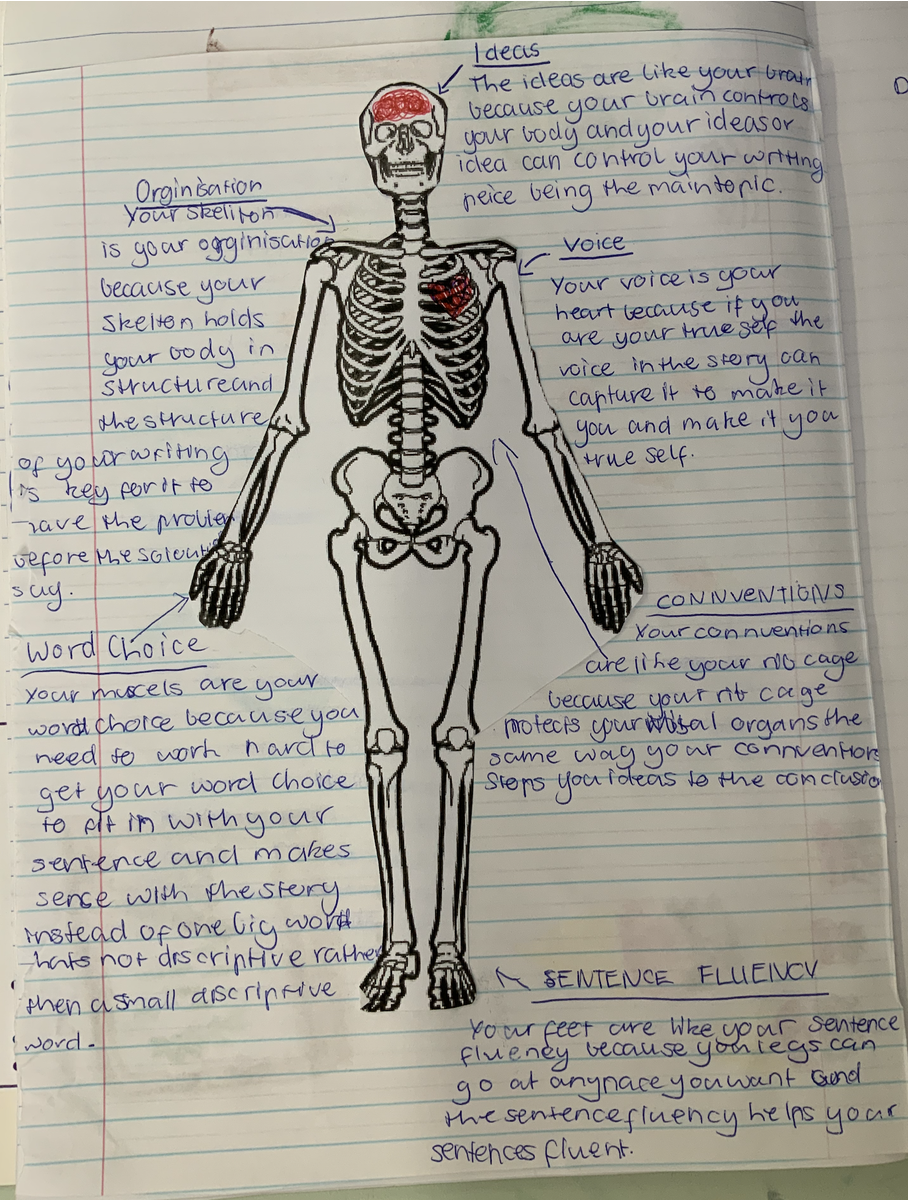 Ideas
The ideas are like your brain
because your brain controls
your body and your ideas or
idea can control your writting
peice being the main topic.
Orginisation
Your skeliton
is your ogginisation
because your
skelton holds
your body in
structure and
the structure
of your writing
is key for it to
have the problem
before the soloution
say.
Voice
Your voice is your
heart because if you
are your true self the
voice in the story can
capture it to make it
you and make it you
true self.
CONNVENTIONS
Your connventions
are like your rib cage
because your rib cage
protects your vital organs the
same way your connventions
stops you ideas to the conclusio
Word Choice
Your muscels are your
word choice because you
need to work hard to
get your word choice
to fit in with your
sentence and makes
sence with the story
instead of one big word
thats not discriptive rather
then a small discriptive
word.
SENTENCE FLUENCY
Your feet are like your sentence
fluency because you legs can
go at any pace you want and
the sentence fluency helps your
sentences fluent.